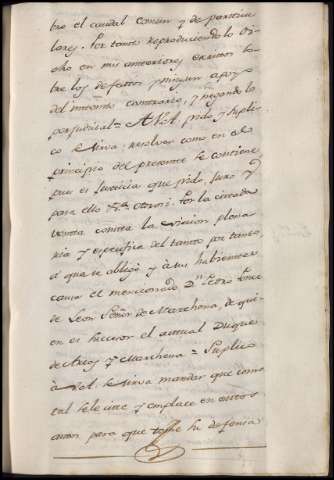 tro el caudal comun y de particu
lares. Por tanto reproduciendo lo di-
cho en mis anteriores escritos so-
bre los defectos y ningun apoyo
del intento contrario, y negando lo
perjudicial = A V.A. pido y supli-
co se sirva resolver como en el
principio del presente se contiene
pues es Justicia que pido, juro y
para ello &ª. Otrosi. Por la citada
venta contra la eviccion plena
ria y especifica del tanto por tanto,
á que se obligó y á sus habientes
causa el mencionado Dn. Pedro Ponce
de Leon Señor de Marchena, de qui-
en es sucesor el actual Duque
de Arcos y Marchena = Suplico
á V.A. se sirva mandar que como
tal se le cite y emplace en estos
autos para que tome su defensa